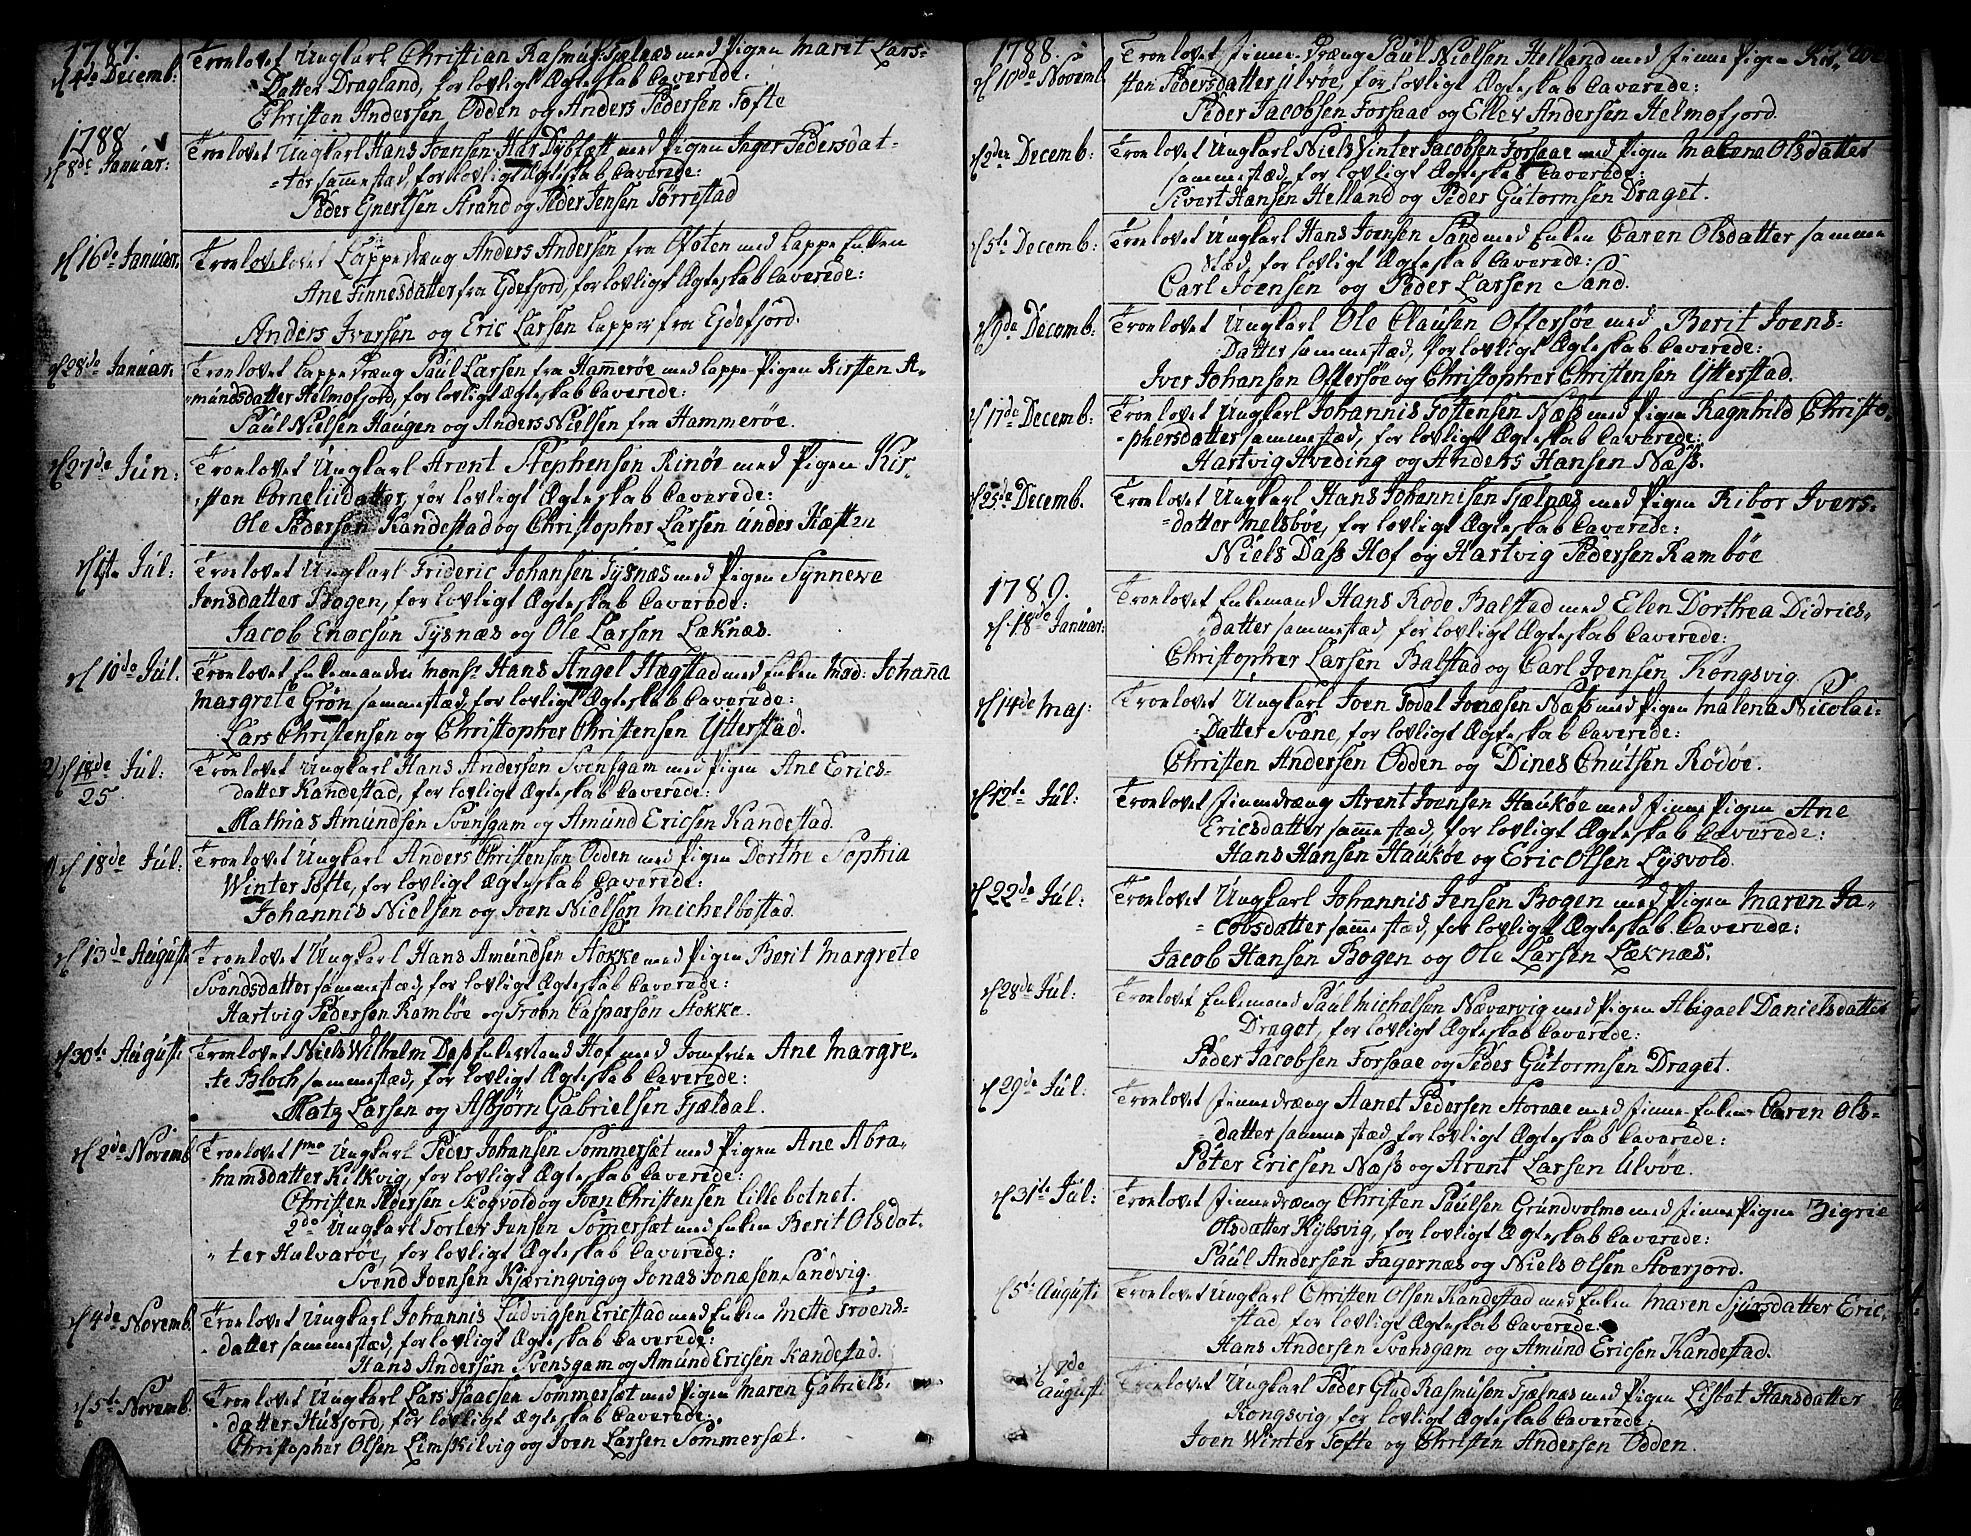 1787.
d 4de Decemb:
Troelovet Ungkarl Christian Rasmus: Tjelnæs med Pigen Marit Lars-
Datter Dragland, for lovligt Ægteskab Caverede:
Christen Andersen Odden og Anders Pedersen Tofte
1788
d 8de Januar:
Troelovet Ungkarl Hans Joensen Dybtæft med Pigen Inger Pedersdat-
=ter sammestad, for lovligt Ægteskab Caverede:
Peder Ejnertsen Strand og Peder Jensen Torrestad
d 16de Januar.
Troelovelovet Lappedræng Anders Andersen fra Ofoten med Lappe Enken
Ane Finnesdatter fra Ejdefjord, for lovligt Ægteskab Caverede:
Anders Iversen og Eric Larsen Lapper fra Ejdefjord.
d 28de Januar:
Troelovet Lappe Dræng Paul Larsen fra Hamerøe med Lappe-Pigen Kirsten A-
=mundsdatter Helmofjord, for lovligt Ægteskab Caverede:
Paul Nielsen Haugen og Anders Nielsen fra Hammerøe.
d 27de Jun:
Troelovet Ungkarl Arent Stephensen Rinøe med Pigen Kir-
=sten Corneliidatter, for lovligt Ægteskab Caverede:
Ole Pedersen Kandestad og Christopher Larsen under Hæften
d 1ste Jul:
Troelovet Ungkarl Frideric Johansen Tysnæs med Pigen Synnewe
Jensdatter Bogen, for lovligt Ægteskab Caverede:
Jacob Enocsen Tysnæs og Ole Larsen Læknæs.
d 10de Jul.
Troelovet Enkemanden Monsr Hans Angel Hægstad med Enken Mad: Johaña
Margrete Grøn sammestæd, for lovligt Ægteskab Caverede:
Lars Christensen og Christopher Christensen Ytterstad.
2) d 18de Jul:
25
Troelovet Ungkarl Hans Andersen Svensgam med Pigen Ane Erics-
datter Kandestad, for lovligt Ægteskab Caverede:
Mathias Amundsen Svensgam og Amund Ericsen Kandestad.
1) d 18de Jul:
Troelovet Ungkarl Anders Christensen Odden med Pigen Dorthe Sophia
Winter Tofte, for lovligt Ægteskab Caverede:
Johannis Nielsen og Joen Nielsen Michelbostad.
d 13de August:
Troelovet Ungkarl Hans Amundsen Stokke med Pigen Berit Margrete
Svendsdatter sammestæd, for lovligt Ægteskab Caverede:
Hartvig Pedersen Rambøe og Troen Caspersen Stokke.
d 30te August:
Troelovet Niels Wilhelm Dass Enkestand Hof med Jomfrue Ane Margre-
te Bloch sammestæd, for lovligt Ægteskab Caverede:
Matz Larsen og Asbjørn Gabrielsen Fjældal.
d 2de Novemb
Troelovet 1mo Ungkarl Peder Johansen Sommersæt med Pigen Ane Abra-
hamsdatter Kilkvig, for lovligt Ægteskab Caverede:
Christen Pedersen Skogvold og Joen Christensen Lillebotnet.
2do Ungkarl Torler Jensen Somersæt med Enken Berit Olsdat-
ter Halvarøe, for lovligt Ægteskab Caverede:
Svend Joensen Kjæringvig og Jonas Jonæsen Sandvig.
d 4de Novemb.
Troelovet Ungkarl Johannis Ludvigsen Ericstad med Enken Mette Troens-
datter sammestæd, for lovligt Ægteskab Caverede:
Hans Andersen Svensgam og Amund Ericsen Kandestad.
d 5te Novemb.
Troelovet Ungkarl Lars Isaacsen Sommersæt med Pigen Maren Gabriels-
datter Husjord, for lovligt Ægteskab Caverede:
Christopher Olsen Limskilvig og Joen Larsen Sommersæt.
1788.
d 10de Novemb
Troelovet Finne-Dræng Paul Nielsen Helland med Finne Pigen Kir-
sten Pedersdatter Ulvøe, for lovligt Ægteskab Caverede:
Peder Jacobsen Forsaae og Ellev Andersen Helmofjord.
d 2den Decemb:
Troelovet Ungkarl Niels Winter Jacobsen Forsaae med Pigen Malena Olsdatter
sammestæd, for lovligt Ægteskab Caverede:
Sivert Hansen Helland og Peder Gutormsen Draget.
d 5te Decemb:
Troelovet Ungkarl Hans Joensen Sand med Enken Caren Olsdatter samme
stæd, for lovligt Ægteskab Caverede:
Carl Joensen og Peder Larsen Sand.
d 9de Decemb:
Troelovet Ungkarl Ole Clausen Offersøe med Berit Joens-
Datter sammestæd, for lovligt Ægteskab Caverede:
Iver Johansen Offersøe og Christopher Christensen Ytterstad.
d 17de Decemb:
Troelovet Ungkarl Johannis Toftensen Næss med Pigen Ragnhild Christo-
=phersdatter sammestæd, for lovligt Ægteskab Caverede:
Hartvig Hveding og Anders Hansen Næss.
d 25de Decemb.
Troelovet Ungkarl Hans Johannisen Tjælnæs med Pigen Ribor Ivers-
=datter Melsbøe, for lovligt Ægteskab Caverede:
Niels Dass Hof og Hartvig Pedersen Rambøe
1789.
d 18de Januar:
Troelovet Enkemand Hans Rode Balstad med Elen Dorthea Didrics-
datter sammestæd, for lovligt Ægteskab Caverede:
Christopher Larsen Balstad og Carl Joensen Kongsvig.
d 14de Maj:
Troelovet Ungkarl Joen Todal Jonæsen Næss med Pigen Malena Nicolai-
Datter Svane, for lovligt Ægteskab Caverede:
Christen Andersen Odden og Dines Cnutsen Rødøe.
d 12te Jul:
Troelovet Finnedræng Arent Joensen Haukøe med Finne Pigen Ane
Ericsdatter sam̅estæd, for lovligt Ægteskab Caverede:
Hans Hansen Haukøe og Eric Olsen Lysvold.
d 22de Jul:
Troelovet Ungkarl Johannis Jensen Bogen med Pigen Maren Ja-
=cobsdatter sam̅estæd, for lovligt Ægteskab Caverede:
Jacob Hansen Bogen og Ole Larsen Læknæs.
d 28de Jul:
Troelovet Enkemand Paul Michelsen Nævervig med Pigen Abigael Danielsdatter
Draget, for lovligt Ægteskab Caverede:
Peder Jacobsen Forsaae og Peder Gutormsen Draget.
d 29de Jul:
Troelovet Finnedræng Aanet Pedersen Storaae med Finne-Enken Caren Ols-
=datter sammestæd for lovligt Ægteskab Caverede:
Peter Ericsen Næss og Arent Larsen Ulvøe.
d 31te Jul:
Troelovet Finnedræng Christen Paulsen Grundvolmo med Finne Pigen Zigrie
Olsdatter Kjelsvig, for lovligt Ægteskab Caverede:
Paul Andersen Fagernæs og Niels Olsen Storjord.
d 5te August:
Troelovet Ungkarl Christen Olsen Kandestad med Enken Maren Sjursdatter Eric-
stad for lovligt Ægteskab Caverede:
Hans Andersen Svensgam og Amund Ericsen Kandestad.
d 7de
August:
Troelovet Ungkarl Peder Glad Rasmusen Tjælnæs med Pigen Lisbet Hansdatter
Kongsvig for lovligt Ægteskab Caverede:
Joen Winter Tofte og Christen Andersen Odden.